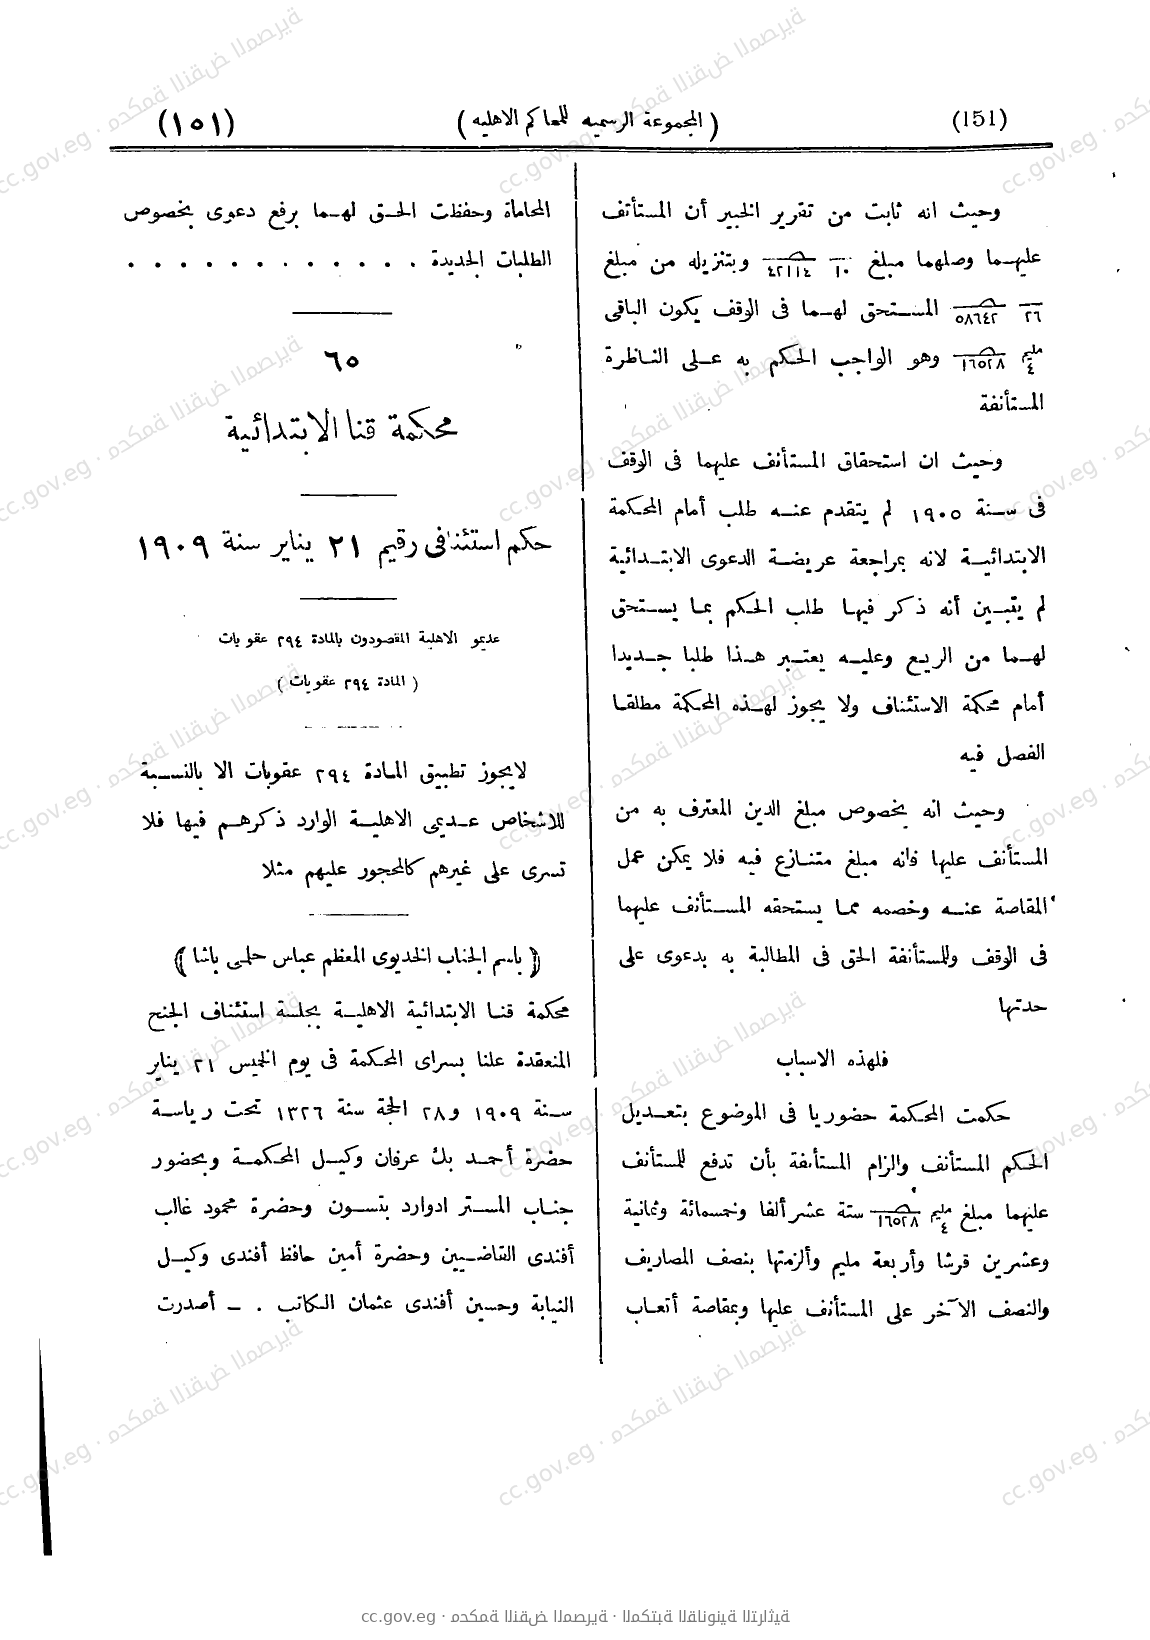 (151)
( المجموعة الرسميه للمحاكم الاهليه )
(١٥١)
وحيث انه ثابت من تقرير الخبير أن المستأنف
عليهما وصلهما مبلغ ١٠ ٤٢١١٤ وبتنزيله من مبلغ
٢٦ ٥٨٦٤٢ المستحق لهما فى الوقف يكون الباقى
مليم ٤ ١٦٥٢٨ وهو الواجب الحكم به على الناظرة
المستأنفة
وحيث ان استحقاق المستأنف عليهما فى الوقف
فى سنة ١٩٠٥ لم يتقدم عنه طلب أمام المحكمة
الابتدائية لانه بمراجعة عريضة الدعوى الابتدائية
لم يتبين أنه ذكر فيها طلب الحكم بما يستحق
لهما من الريع وعليه يعتبر هذا طلبا جديدا
أمام محكمة الاستئناف ولا يجوز لهذه المحكمة مطلقا
الفصل فيه
وحيث انه بخصوص مبلغ الدين المعترف به من
المستأنف عليها فانه مبلغ متنازع فيه فلا يمكن عمل
المقاصة عنه وخصمه مما يستحقه المستأنف عليهما
فى الوقف وللمستأنفة الحق فى المطالبة به بدعوى على
حدتها
فلهذه الاسباب
حكمت المحكمة حضوريا فى الموضوع بتعديل
الحكم المستأنف والزام المستأنفة بأن تدفع للمستأنف
عليهما مبلغ مليم ٤ ١٦٥٢٨ ستة عشر ألفا وخمسمائة وثمانية
وعشرين قرشا وأربعة مليم وألزمتها بنصف المصاريف
والنصف الآخر على المستأنف عليها وبمقاصة أتعاب
المحاماة وحفظت الحق لهما برفع دعوى بخصوص
الطلبات الجديدة . . . . . . . . . . . .
٦٥
محكمة قنا الابتدائية
حكم استئنافى رقيم ٢١ يناير سنة ١٩٠٩
عديمو الاهلية المقصودون بالمادة ٢٩٤ عقوبات
( المادة ٢٩٤ عقوبات )
لايجوز تطبيق المادة ٢٩٤ عقوبات الا بالنسبة
للاشخاص عديمى الاهلية الوارد ذكرهم فيها فلا
تسرى على غيرهم كالمحجور عليهم مثلا
(( باسم الجناب الخديوى المعظم عباس حلمى باشا ))
محكمة قنا الابتدائية الاهلية بجلسة استئناف الجنح
المنعقدة علنا بسراى المحكمة فى يوم الخميس ٢١ يناير
سنة ١٩٠٩ و٢٨ الحجة سنة ١٣٢٦ تحت رياسة
حضرة أحمد بك عرفان وكيل المحكمة وبحضور
جناب المستر ادوارد بتسون وحضرة محمود غالب
أفندى القاضيين وحضرة أمين حافظ أفندى وكيل
النيابة وحسين أفندى عثمان الكاتب . ـ أصدرت
cc.gov.eg · محكمة النقض المصرية · المكتبة القانونية التراثية